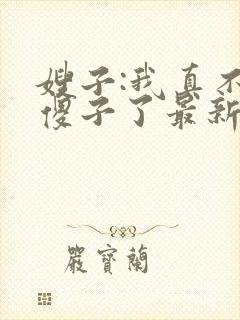 嫂子:我真不
傻子了最新
嚴寶蘭